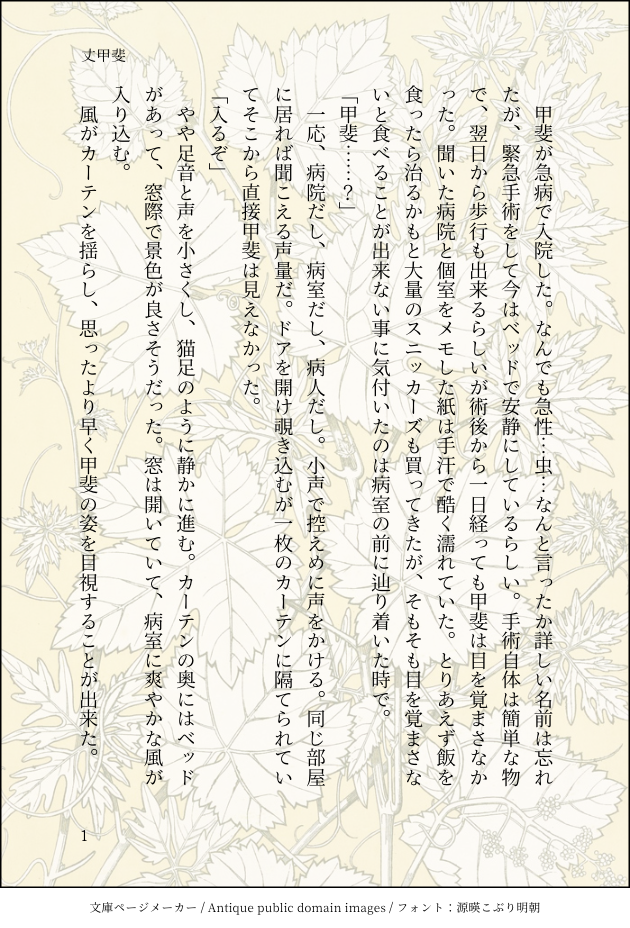 丈甲斐
　甲斐が急病で入院した。なんでも急性…虫…なんと言ったか詳しい名前は忘れ
たが、緊急手術をして今はベッドで安静にしているらしい。手術自体は簡単な物
で、翌日から歩行も出来るらしいが術後から一日経っても甲斐は目を覚まさなか
った。聞いた病院と個室をメモした紙は手汗で酷く濡れていた。とりあえず飯を
食ったら治るかもと大量のスニッカーズも買ってきたが、そもそも目を覚まさな
いと食べることが出来ない事に気付いたのは病室の前に辿り着いた時で。
「甲斐……？」
　一応、病院だし、病室だし、病人だし。小声で控えめに声をかける。同じ部屋
に居れば聞こえる声量だ。ドアを開け覗き込むが一枚のカーテンに隔てられてい
てそこから直接甲斐は見えなかった。
「入るぞ」
　やや足音と声を小さくし、猫足のように静かに進む。カーテンの奥にはベッド
があって、窓際で景色が良さそうだった。窓は開いていて、病室に爽やかな風が
入り込む。
　風がカーテンを揺らし、思ったより早く甲斐の姿を目視することが出来た。
1
文庫ページメーカー / Antique public domain images / フォント：源暎こぶり明朝